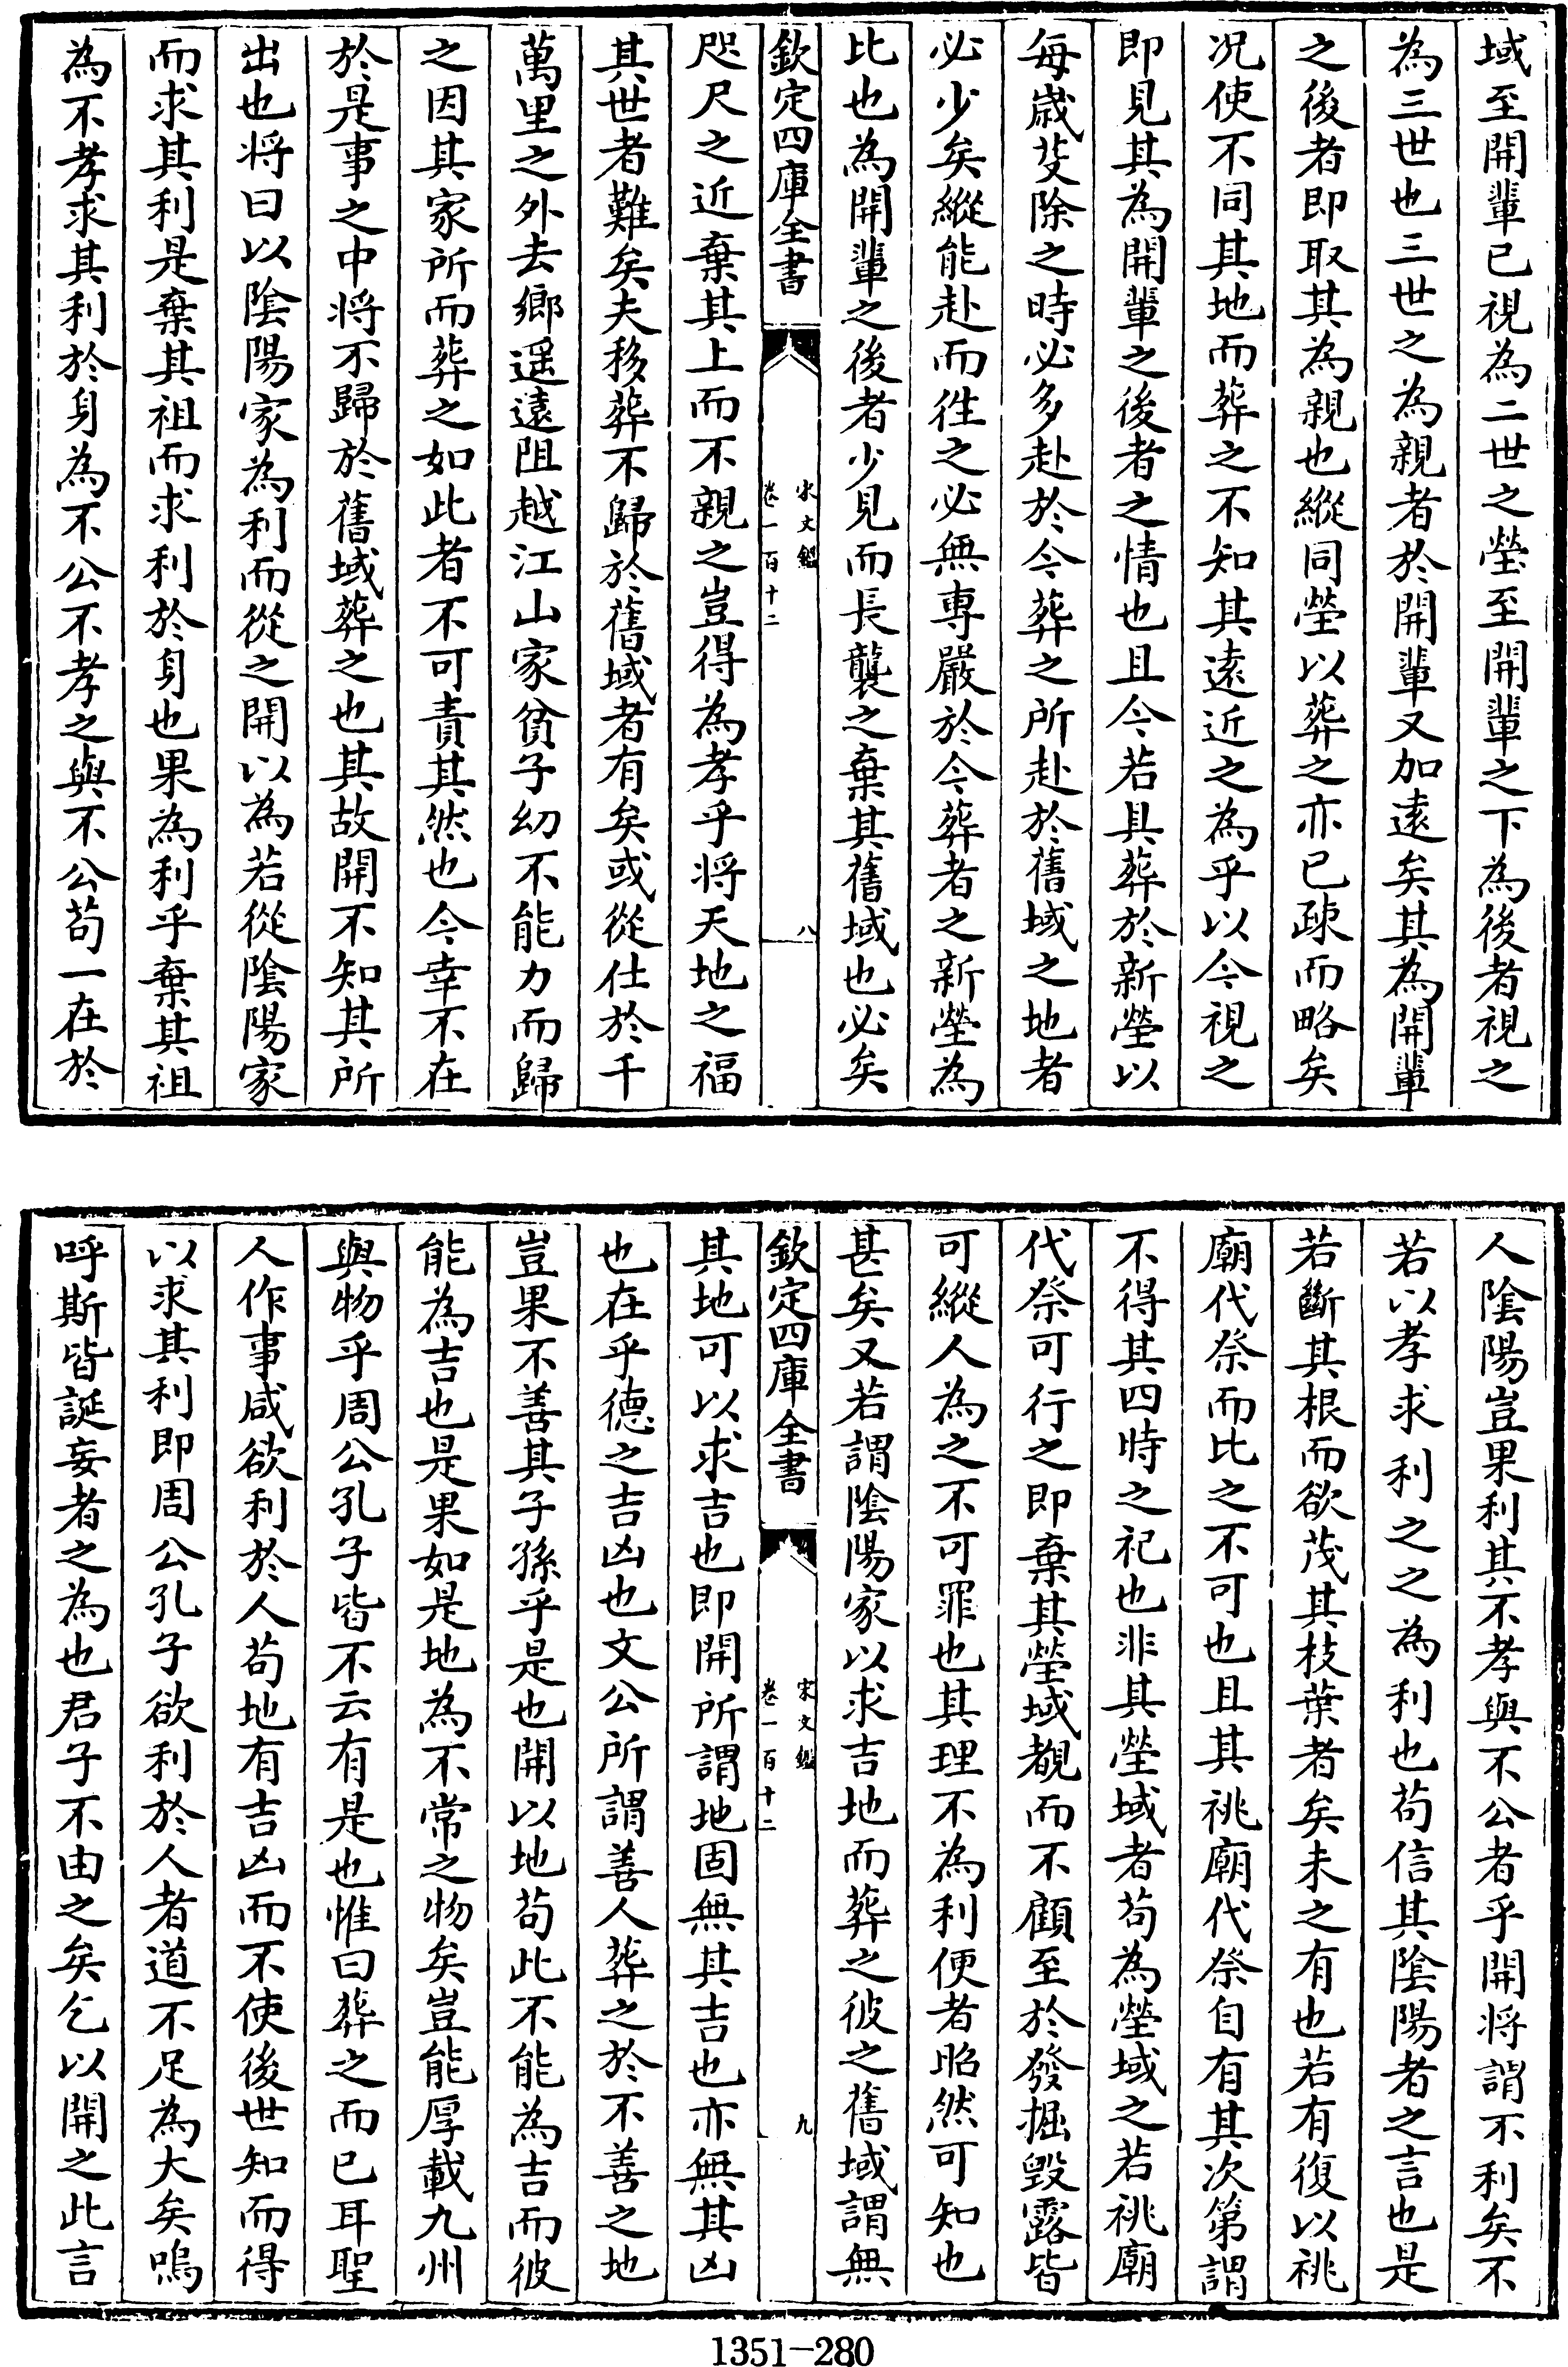 域至開輩已視為二世之塋至開輩之下為後者視之
為三世也三世之為親者於開輩又加遠矣其為開輩
之後者即取其為親也縱同塋以葬之亦已疎而略矣
况使不同其地而葬之不知其遠近之為乎以今視之
即見其為開輩之後者之情也且今若具葬於新塋以
每歳芟除之時必多赴於今葬之所赴於舊域之地者
必少矣縱能赴而徃之必無専嚴於今葬者之新塋為
比也為開輩之後者少見而長襲之棄其舊域也必矣
欽定四庫全書
宋文鑑
卷一百十二
八
咫尺之近棄其上而不親之豈得為孝乎将天地之福
其世者難矣夫移葬不歸於舊域者有矣或從仕於千
萬里之外去鄉遥遠阻越江山家貧子幼不能力而歸
之因其家所而葬之如此者不可責其然也今幸不在
於是事之中将不歸於舊域葬之也其故開不知其所
出也将曰以陰陽家為利而從之開以為若從陰陽家
而求其利是棄其祖而求利於身也果為利乎棄其祖
為不孝求其利於身為不公不孝之與不公苟一在於
人陰陽豈果利其不孝與不公者乎開将謂不利矣不
若以孝求利之之為利也苟信其陰陽者之言也是
若斷其根而欲茂其枝葉者矣未之有也若有復以祧
廟代祭而比之不可也且其祧廟代祭自有其次第謂
不得其四時之祀也非其塋域者苟為塋域之若祧廟
代祭可行之即棄其塋域覩而不顧至於發掘毁露皆
可縱人為之不可罪也其理不為利便者昭然可知也
甚矣又若謂陰陽家以求吉地而葬之彼之舊域謂無
欽定四庫全書
宋文鑑
卷一百十二
九
其地可以求吉也即開所謂地固無其吉也亦無其凶
也在乎德之吉凶也文公所謂善人葬之於不善之地
豈果不善其子孫乎是也開以地苟此不能為吉而彼
能為吉也是果如是地為不常之物矣豈能厚載九州
與物乎周公孔子皆不云有是也惟曰葬之而已耳聖
人作事咸欲利於人苟地有吉凶而不使後世知而得
以求其利即周公孔子欲利於人者道不足為大矣嗚
呼斯皆誕妄者之為也君子不由之矣乞以開之此言
1351-280